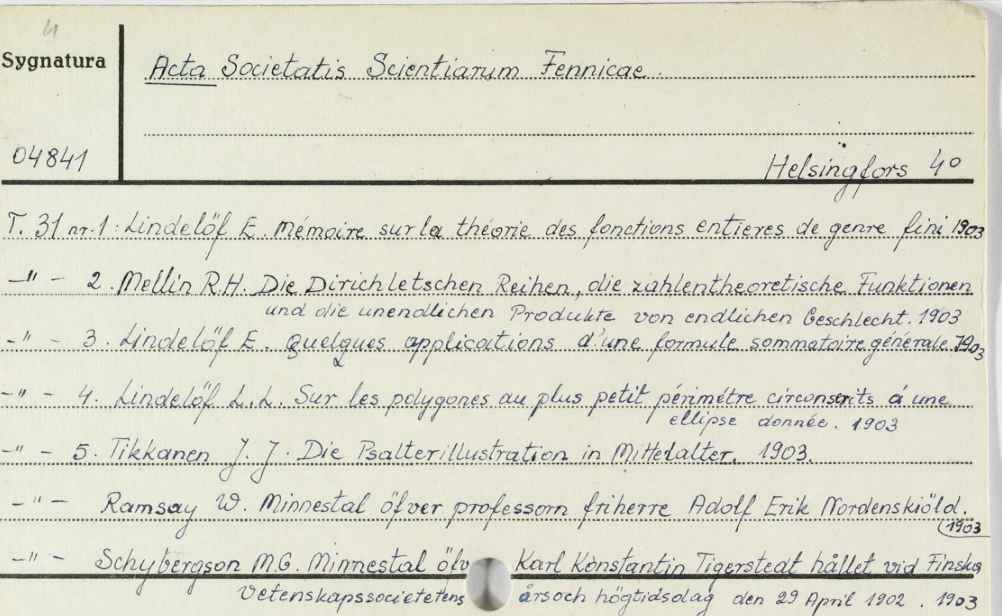 4
Sygnatura
Acta Societatis Scientiarum Fennicae.
04841
Helsingfors 4o
T. 31 nr. 1: Lindelöf E. Mémoire sur la théorie des fonctions entieres de genre fini 1903
–"– 2. Mellin R.H. Die Dirichletschen Reihen, die zahlentheoretische Funktionen
und die unendlichen Produkte von endlichen Geschlecht. 1903
–"– 3. Lindelöf E. Quelques applications d'une formule sommatoire générale. 1903
–"– 4. Lindelöf L.L. Sur les polygones au plus petit périmétre circonscrits á une
ellipse donnée. 1903
–"– 5. Tikkanen J.J. Die Psalterillustration in Mittelalter. 1903.
–"– Ramsay W. Minnestal öfver professorn friherre Adolf Erik Nordenskiöld.
1903
–"– Schybergson M.G. Minnestal öfv Karl Konstantin Tigerstedt hållet vid Finska
Vetenskapssocietetens årsoch högtidsdag den 29 April 1902. 1903